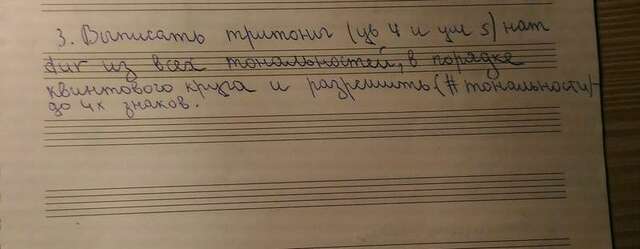 3. Выписать тритоны (ув 4 и ум 5) нат
из всех тональностей, в порядке
квинтового круга и разрешить (# тональности)
до 4х знаков.